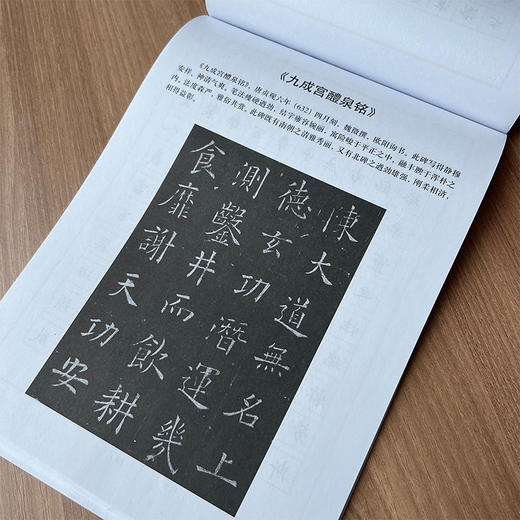 《九成宫醴泉铭》
《九成宫醴泉铭》,唐贞观六年(632)四月刻,魏徵撰,欧阳询书。此碑写得静穆
安祥,神清气爽。笔法瘦硬遒劲,结字雍容婉丽,寓险峻于平正之中,融丰腴于浑朴之
内。法度森严,雅俗共赏。此碑既有南朝之清雅秀丽,又有北碑之遒劲雄强,刚柔相济,
相得益彰。
陳大道無名上
德玄功潛運幾
測鑿井而飲耕
食靡謝天功安